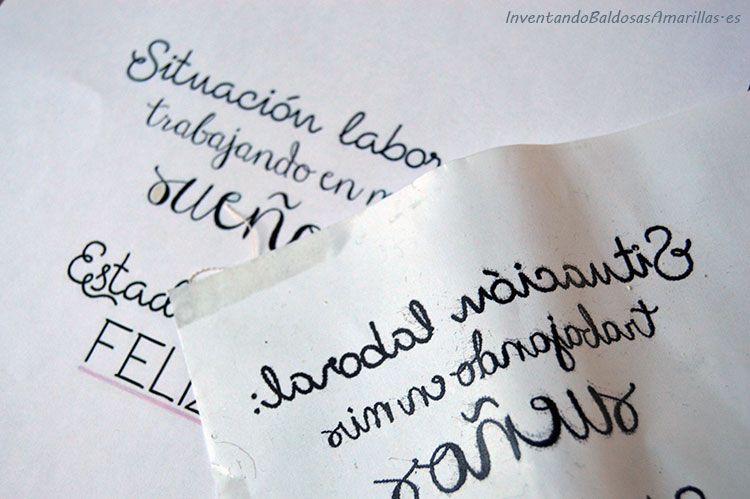 InventandoBaldosasAmarillas.es
Situación labor
trabajando en m
sueño
Estad
FELIZ
Situación laboral:
trabajando en mis
sueños